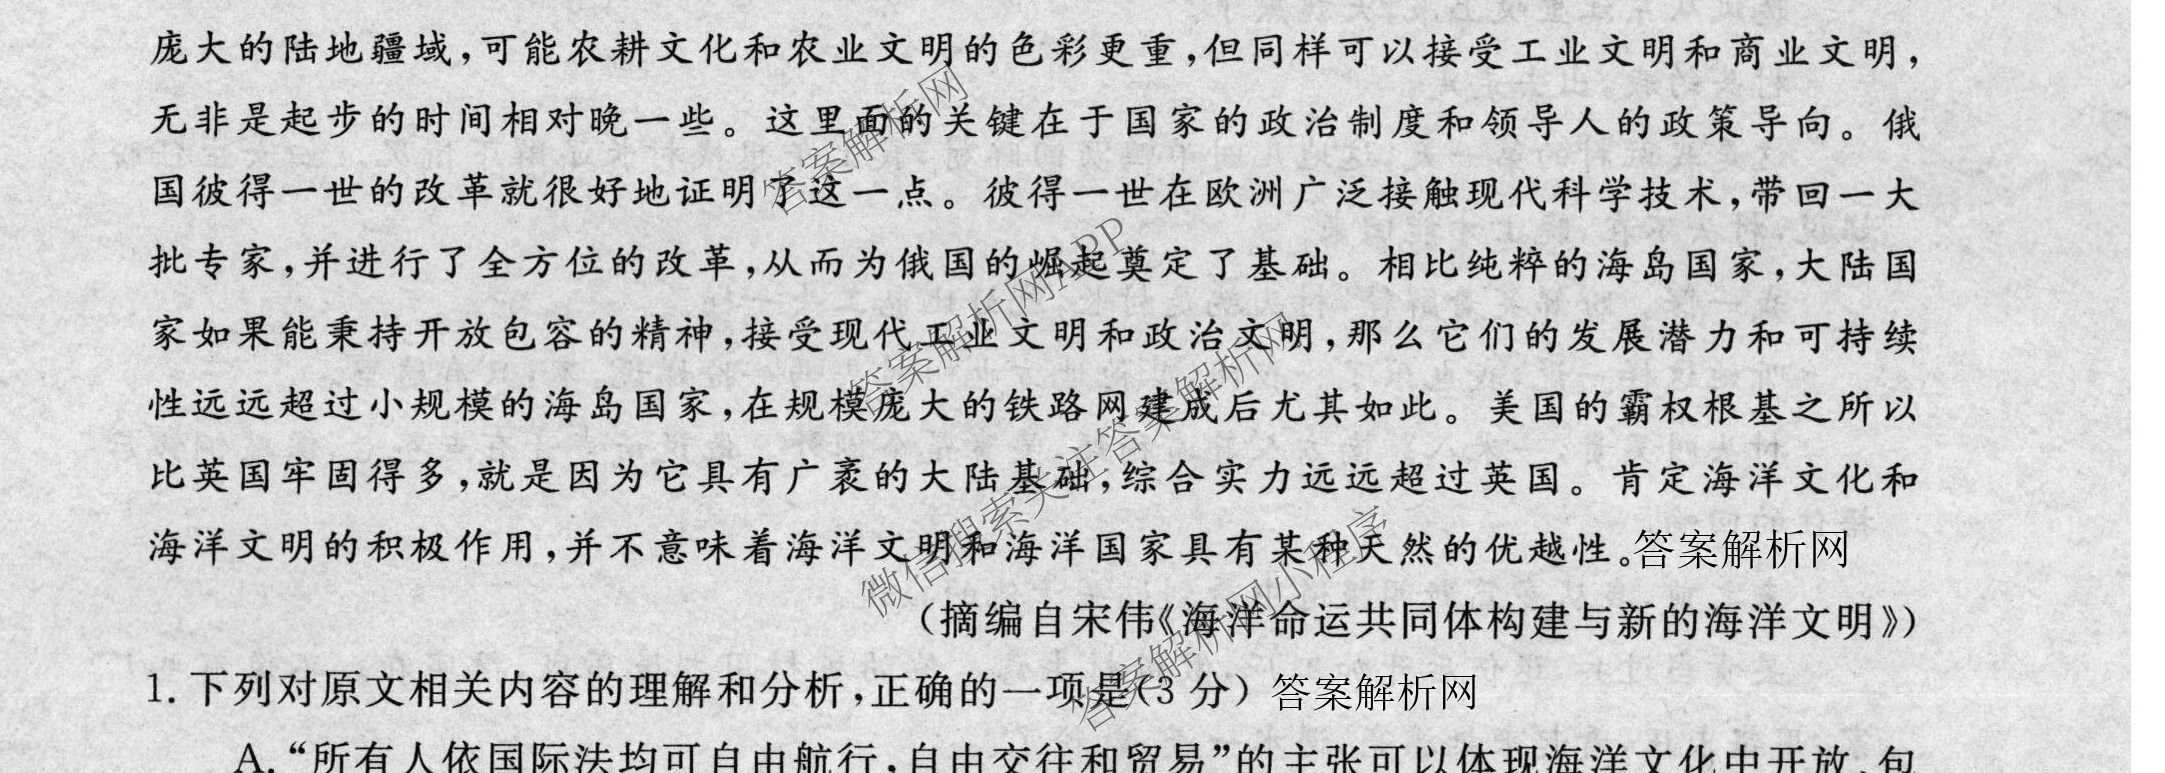 庞大的陆地疆域,可能农耕文化和农业文明的色彩更重,但同样可以接受工业文明和商业文明,
无非是起步的时间相对晚一些。这里面的关键在于国家的政治制度和领导人的政策导向。俄
国彼得一世的改革就很好地证明了这一点。彼得一世在欧洲广泛接触现代科学技术,带回一大
批专家,并进行了全方位的改革,从而为俄国的崛起奠定了基础。相比纯粹的海岛国家,大陆国
家如果能秉持开放包容的精神,接受现代工业文明和政治文明,那么它们的发展潜力和可持续
性远远超过小规模的海岛国家,在规模庞大的铁路网建成后尤其如此。美国的霸权根基之所以
比英国牢固得多,就是因为它具有广袤的大陆基础,综合实力远远超过英国。肯定海洋文化和
海洋文明的积极作用,并不意味着海洋文明和海洋国家具有某种天然的优越性。答案解析网
(摘编自宋伟《海洋命运共同体构建与新的海洋文明》)
1.下列对原文相关内容的理解和分析,正确的一项是(3分) 答案解析网
A.“所有人依国际法均可自由航行,自由交往和贸易”的主张可以体现海洋文化中开放、包
答案解析网
答案解析网APP
微信搜索关注答案解析网
答案解析网小程序